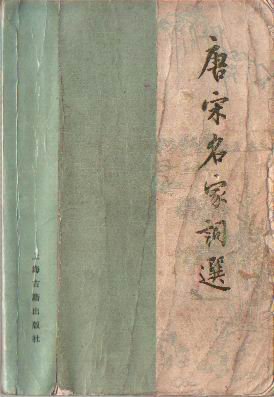 唐宋名家詞選
上海古籍出版社